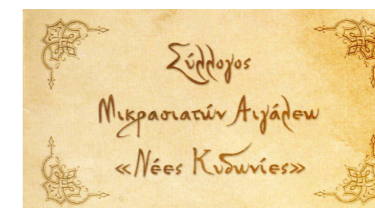 Σύλλογος
Μικρασιατών Αιγάλεω
«Νέες Κυδωνίες»